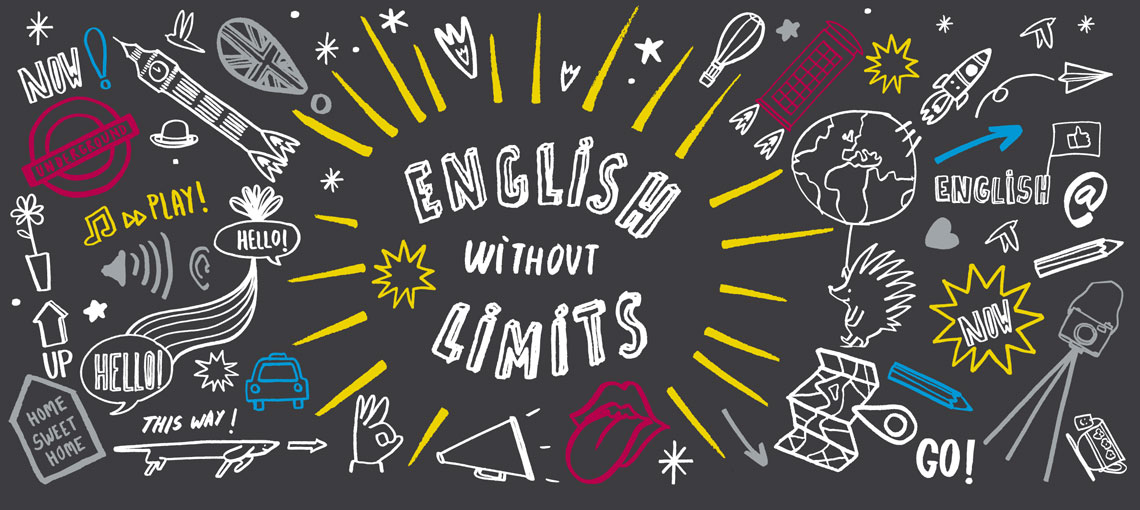 NOW!
UNDERGROUND
PLAY!
HELLO!
UP
HELLO!
HOME
SWEET
HOME
THIS WAY!
ENGLISH
WITHOUT
LIMITS
ENGLISH
@
NOW
GO!